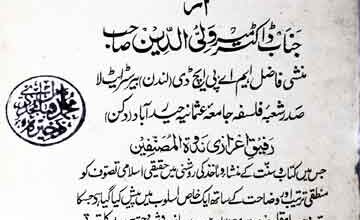 اثر
جناب ڈاکٹر میر ولی الدین صاحب
منشی فاضل ایم اے پی ایچ ڈی (لندن) بیرسٹرایٹ لا
صدر شعبۂ فلسفہ جامعہ عثمانیہ حیدرآباد (دکن)
رفیق اعزازی ندوۃ المصنفین
جس میں کتاب و سنت کے منشا و مانند کی روشنی میں حقیقی اسلامی تصوف کو
منطقی ترتیب اور وضاحت کے ساتھ ایک خاص اسلوب میں پیش کیا گیا ہے